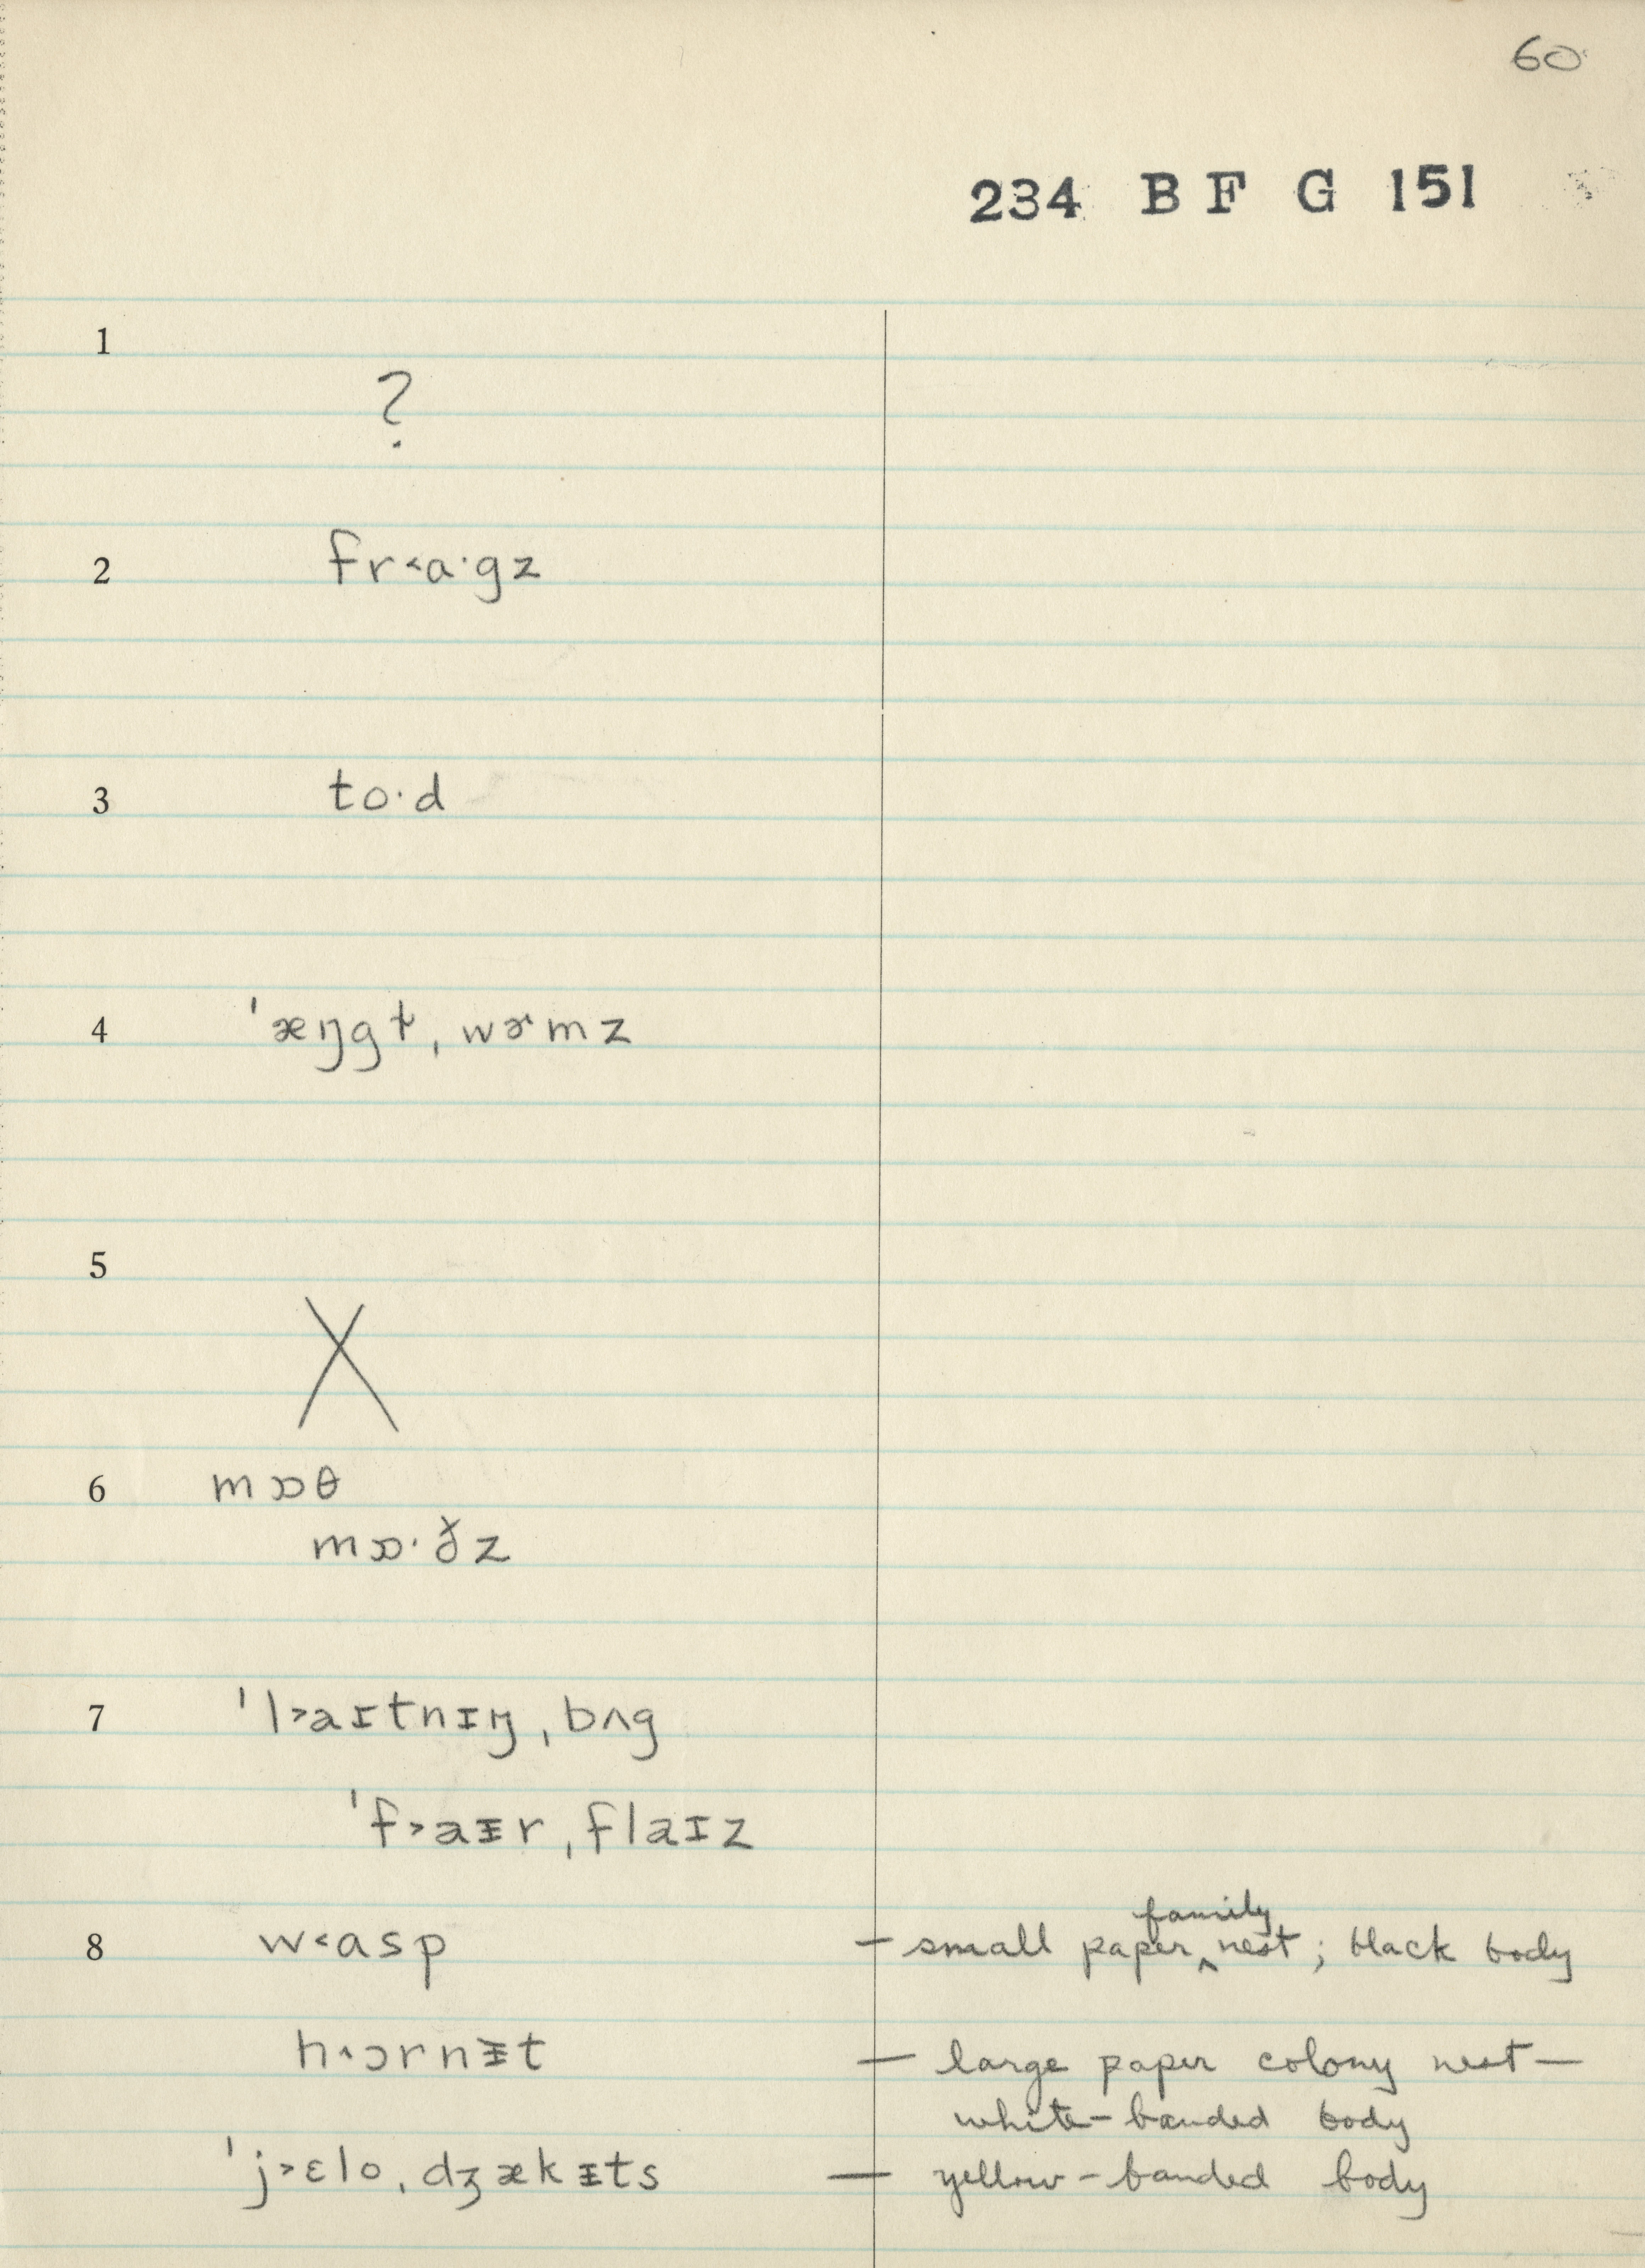 60
234 B F G 151
1
?
2 fr˂a·gz
3 to·d
4 ˈæŋgɫˌwɚmz
5
X
6 mɒθ
mɒ·ðz
7 ˈl˃aɪtnɪŋˌbʌg
ˈf˃aᵻrˌflaɪz
8 w˂asp — small paper ‸ family nest; black body
h˄ɔrnᵻt — large paper colony nest —
white-banded body
ˈj˃ɛloˌdʒækᵻts — yellow-banded body